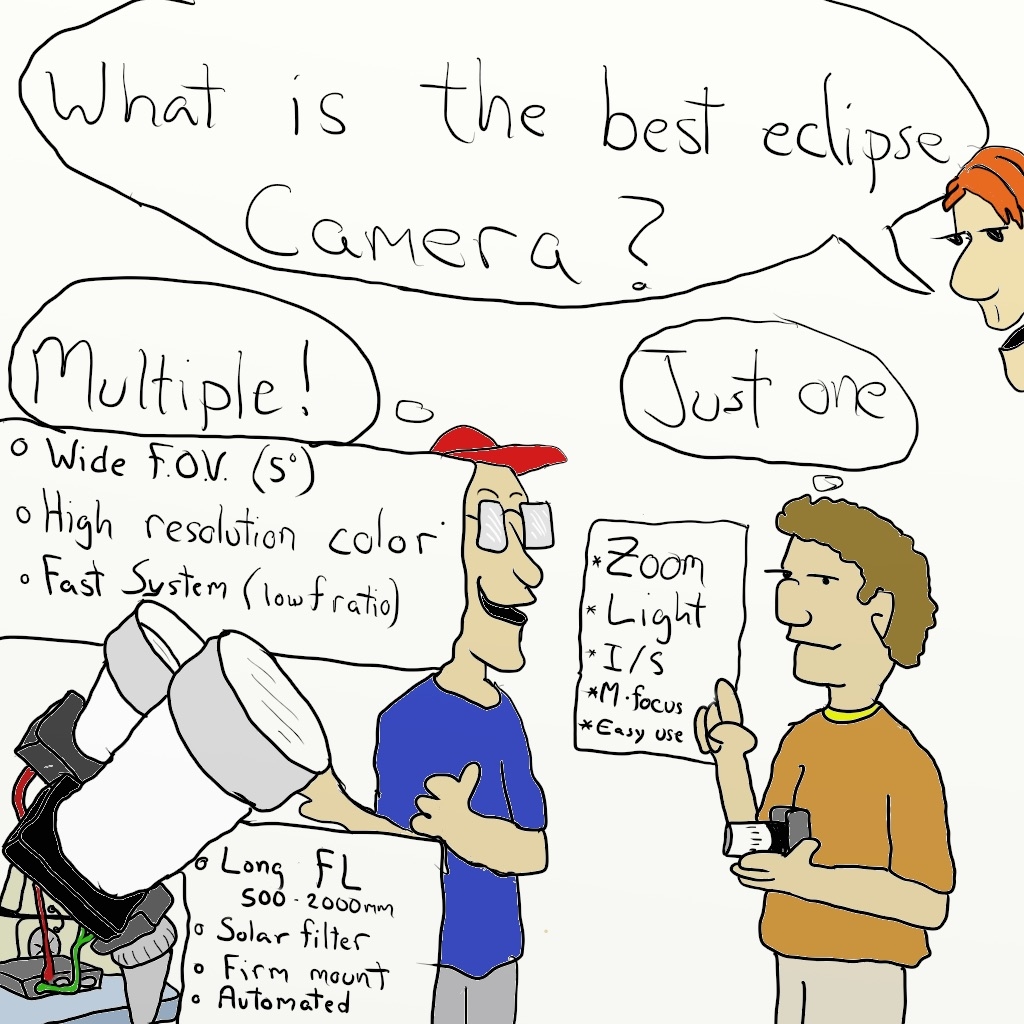 What is the best eclipse
Camera?
Multiple!
Just one
o Wide F.O.V. (5°)
o High resolution color
o Fast System (low f ratio)
* Zoom
* Light
* I/S
* M.focus
* Easy use
o Long FL
500-2000mm
o Solar filter
o Firm mount
o Automated